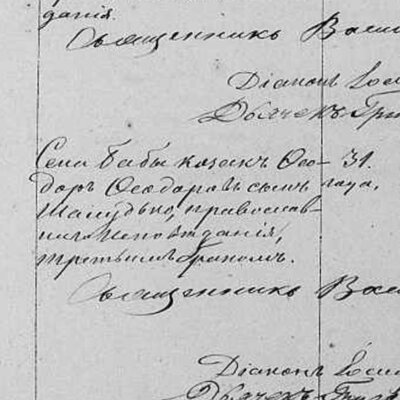 данія.
Священникъ Васи
Діаконъ Іос
Дьячекъ Гри
Села Бабы козакъ Ѳео- 31.
доръ Ѳеодоровъ сынъ года.
православ-
наго исповѣданія,
третьимъ бракомъ.
Священникъ Васи
Діаконъ Іоси
Дьячекъ Григ